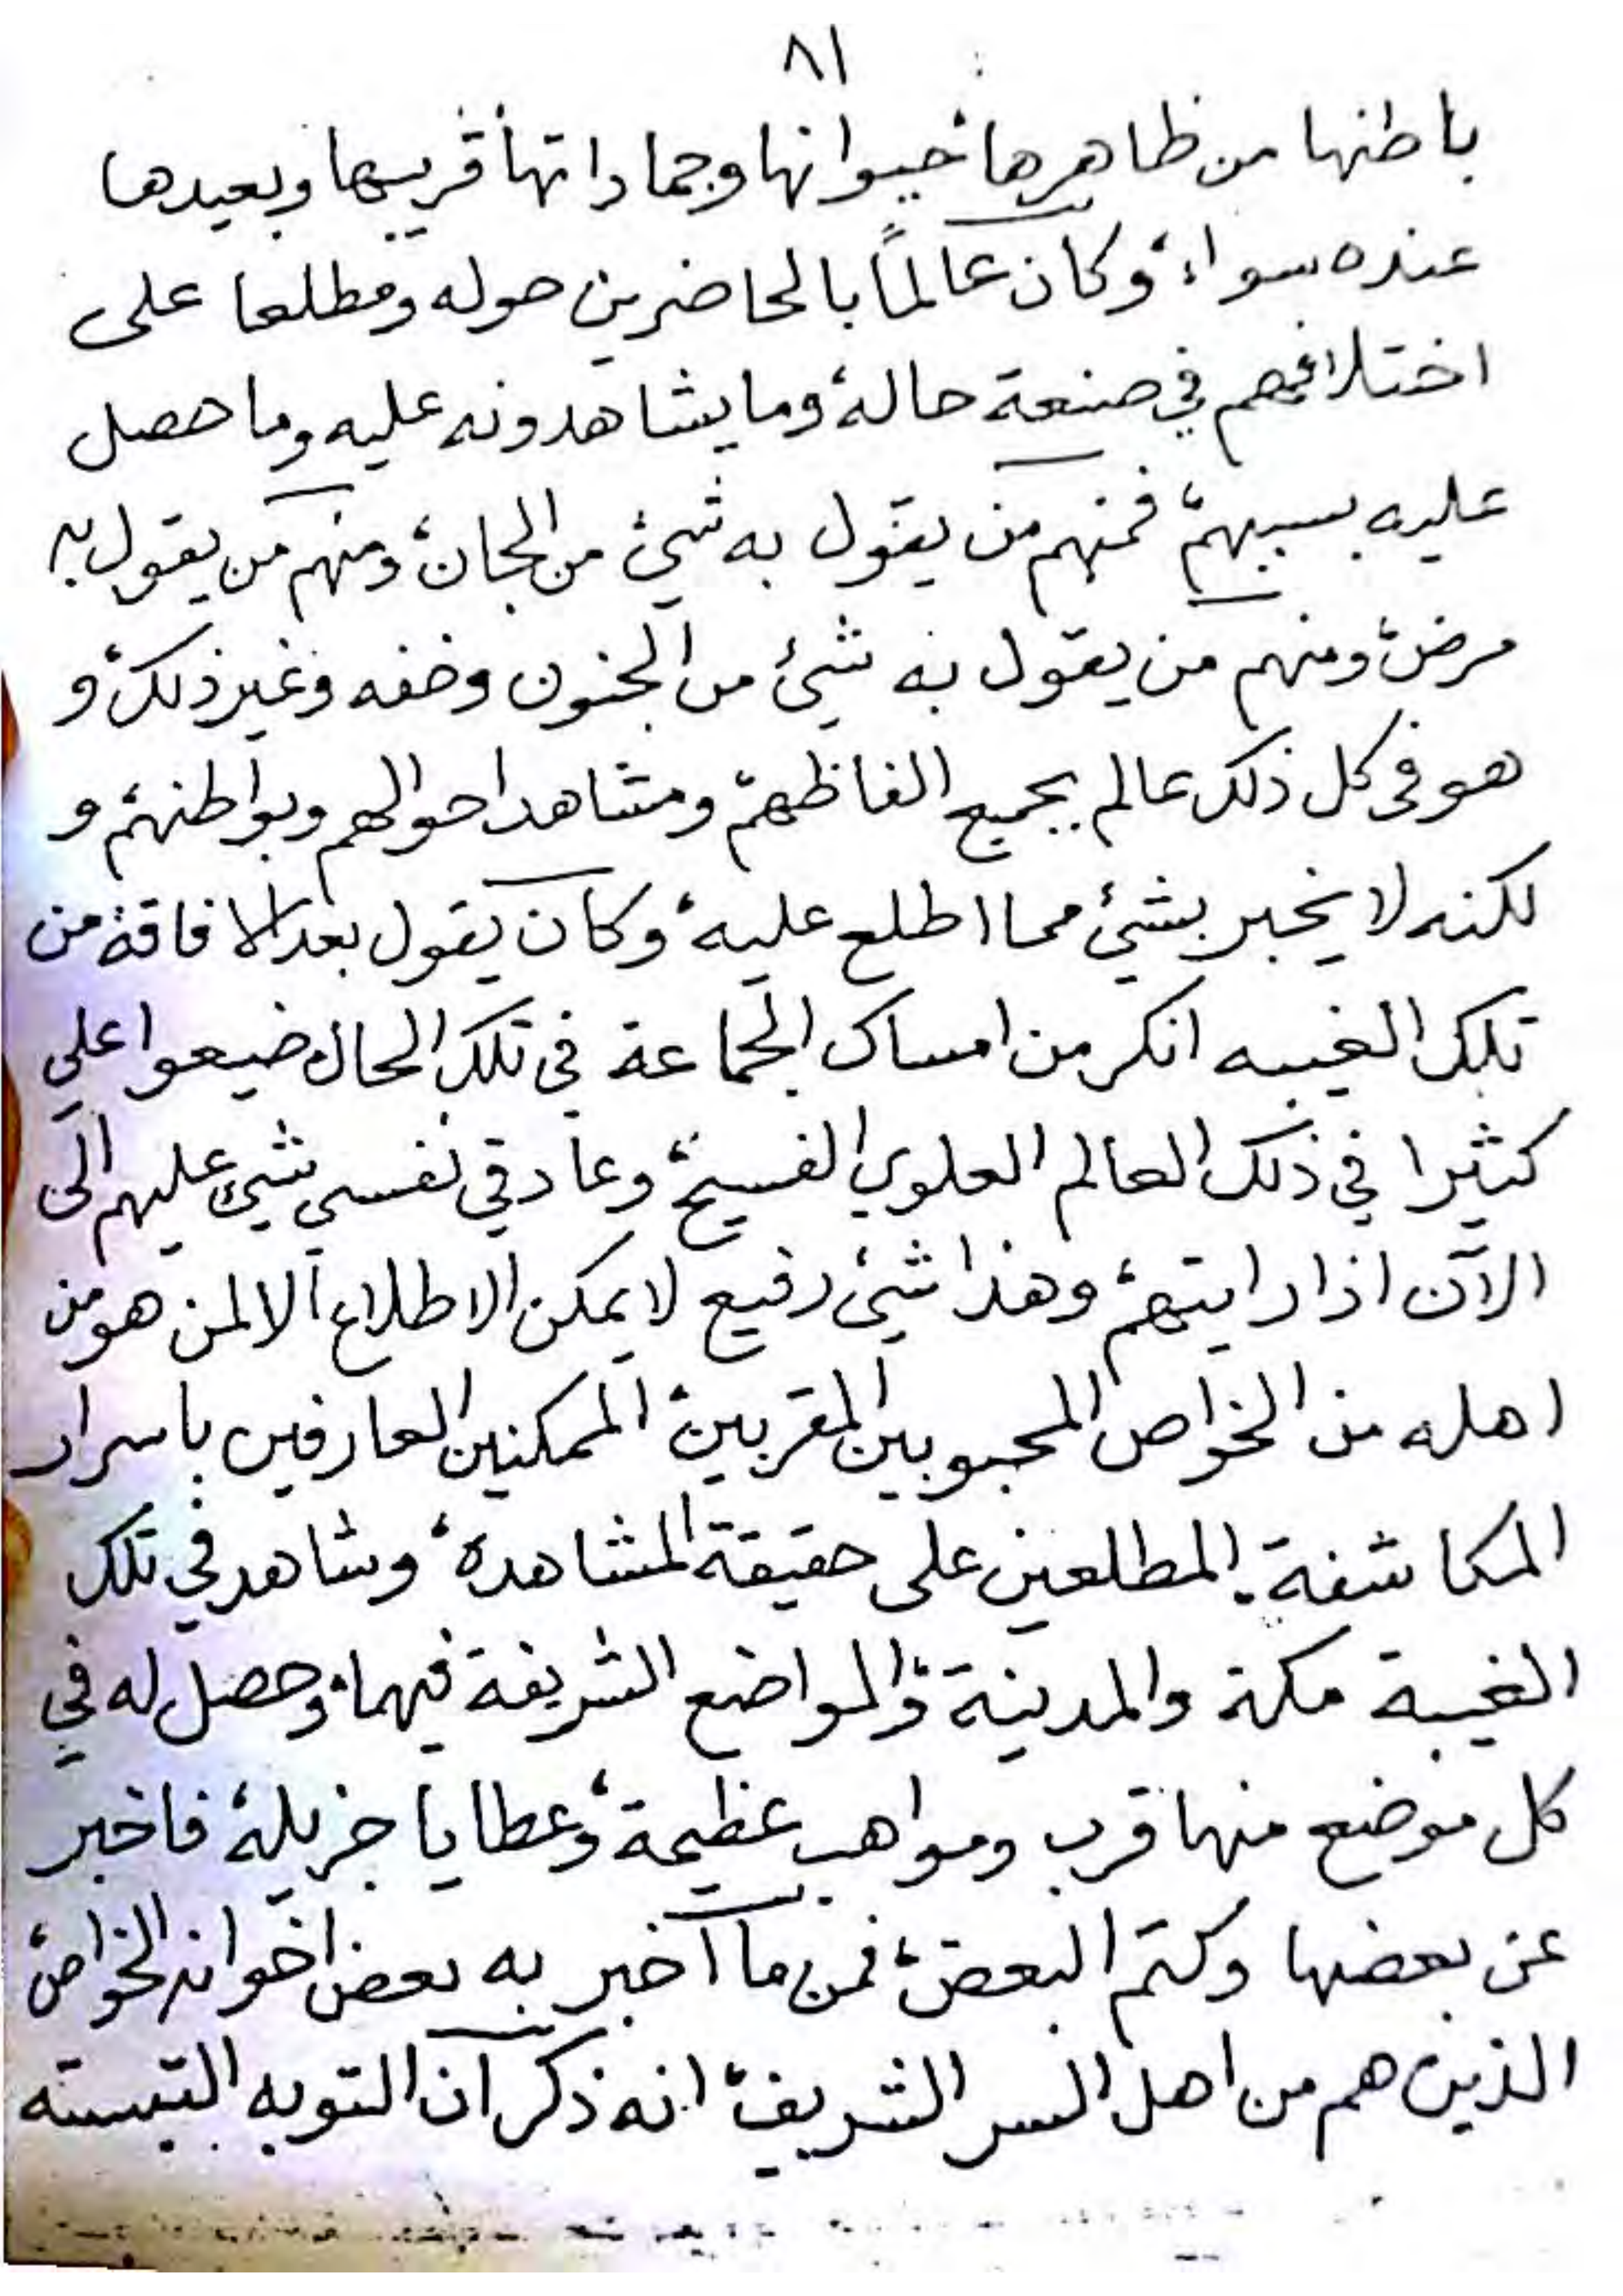 ٨١
باطنها من ظاهرها، حيوانها وجماداتها، قريبها وبعيدها
عنده سواء، وكان عالماً بالحاضرين حوله ومطلعا على
اختلافهم في صنعة حاله، وما يشاهدونه عليه وما حصل
عليه بسببهم، فمنهم من يقول به شيئ من الجان، ومنهم من يقول به
مرض، ومنهم من يقول به شيئ من الجنون وخفه وغير ذلك، و
هو في كل ذلك عالم بجميع الفاظهم، ومشاهد احوالهم وبواطنهم، و
لكنه لا يخبر بشيئ مما اطلع عليه، وكان يقول بعد الافاقة من
تلك الغيبه انكر من امساك الجماعة في تلك الحال، ضيعوا علي
كثيرا في ذلك العالم العلوي الفسيح، وعاد في نفسي شيئ عليهم الى
الآن اذا رايتهم، وهذا شيئ رفيع لا يمكن الاطلاع الا لمن هو من
اهله من الخواص المحبوبين المقربين، الممكنين العارفين باسرار
المكاشفة، المطلعين على حقيقة المشاهدة، وشاهد في تلك
الغيبة مكة والمدينة، والمواضع الشريفة فيهما، وحصل له في
كل موضع منها قرب ومواهب عظيمة، وعطايا جزيلة، فاخبر
عن بعضها وكتم البعض، فمن ما اخبر به بعض اخوانه الخواص،
الذين هم من اهل السر الشريف، انه ذكر ان التوبه